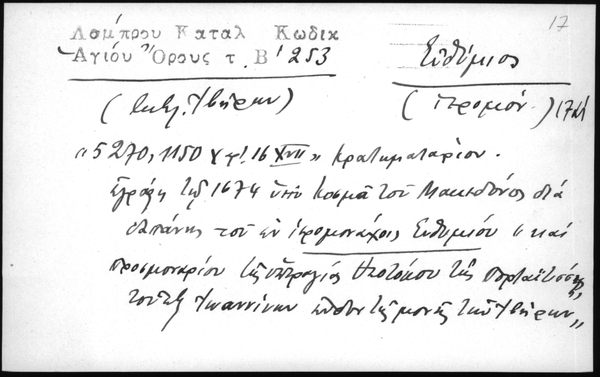 17
Λάμπρου Καταλ Κωδικ
Ἁγίου Ὄρους τ. Β' 253
Εὐθύμιος
(Βιβλ. Ἰβήρων)
(ἱερομόν.) 17
"5270, 1150 χφ. 16 XVII" Κρατηματάριον.
Ἐγράφη τῷ 1674 ὑπὸ Κοσμᾶ τοῦ Μακεδόνος διὰ
δαπάνης τοῦ ἐν ἱερομονάχοις Εὐθυμίου "καὶ
προσμοναρίου τῆς ὑπεραγίας Θεοτόκου τῆς Πορταϊτίσσης
τοῦ ἐξ Ἰωαννίνων τῆς μονῆς τῶν Ἰβήρων"